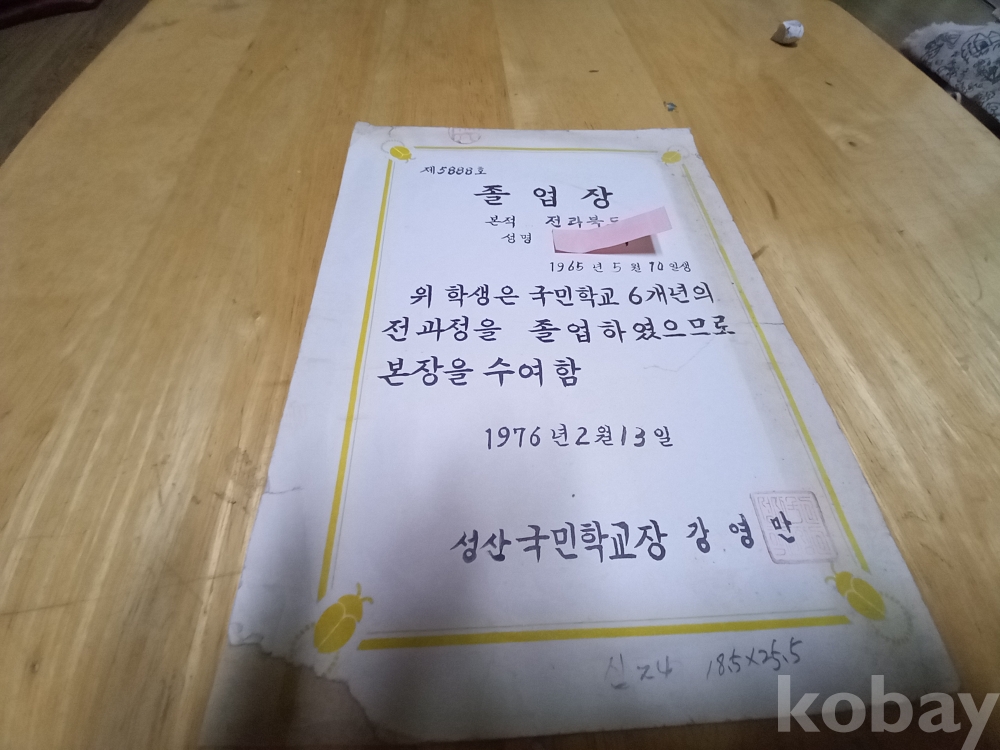 제5888호
졸업장
본적 전라북도
성명
1965년 5월 10일생
위 학생은 국민학교 6개년의
전과정을 졸업하였으므로
본장을 수여함
1976년 2월 13일
성산국민학교장 강영만
18.5×25.5
kobay